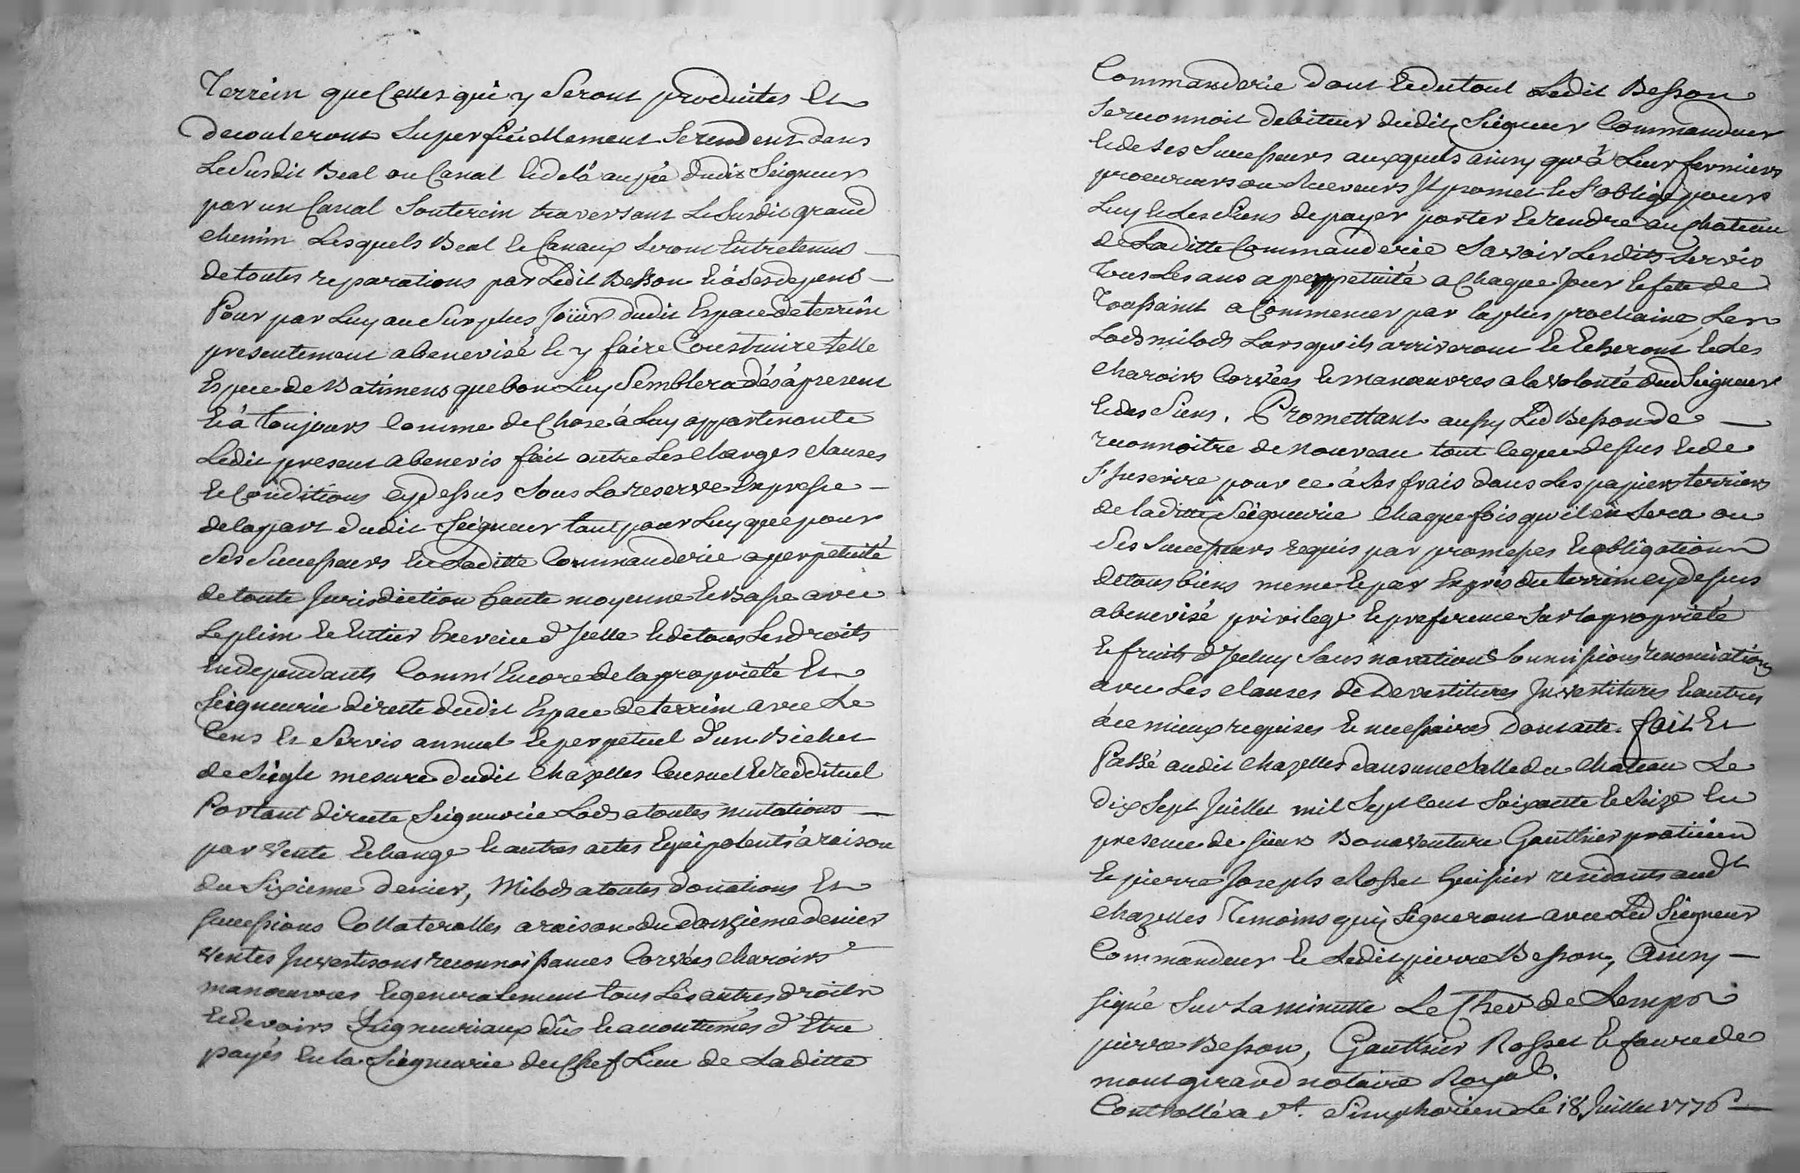 Terrein que Celles qui y Seront produites Et
decouleront Superficiellement Se rendent dans
Le Susdit Beal ou Canal et de là au pré dudit Seigneur
par un Canal Souterein traversant Le Susdit grand
chemin Lesquels Beal et Canaux Seront Entretenus
de toutes reparations par Ledit Besson et à Ses depens
Pour par Luy au Surplus Joüir dudit Espace de terrein
presentement abenevisé et y faire Construire telle
Espece de Batimens que bon Luy Semblera dés à present
et à toujours Comme de Chose à Luy appartenante
Ledit present abenevis fait outre Les Charges clauses
et Conditions cy dessus Sous La reserve Expresse
de la part dudit Seigneur tant pour Luy que pour
Ses Successeurs En Laditte Commanderie a perpetuité
de toute Jurisdiction haute moyenne et Basse avec
Le plein et Entier Exercice d'Jcelle et de tous Les droits
En dependants Comm' Encore de la propriété Et
Seigneurie directe dudit Espace de terrein avec Le
Cens et Servis annuel et perpetuel d'un Bichet
de Seigle mesure dudit Chazelles Censuel et reddituel
Portant directe Seigneurie Lods a toutes mutations
par vente Echange et autres actes Equipolents à raison
du Sixieme denier, Milods a toutes donations Et
Successions Collaterolles a raison du douzieme denier
ventes Jnvestisons reconnoissances Corvées charoirs
manœuvres et generalement tous Les autres droits
et devoirs Seigneuriaux dûs et accoutumés d'Etre
payés En la Seigneurie du Chef Lieu de Laditte
Commanderie dont et du tout Ledit Besson
Se reconnoit debiteur dudit Seigneur Commandeur
et de Ses Successeurs auxquels ainsy qu'à Leur fermiers
procureurs ou Receveurs Jl promet et S'oblige pour
Luy et Les Siens de payer porter et rendre au Chateau
de Laditte Commanderie Savoir Lesdits Servis
Tous Les ans a perpetuité a Chaque Jour et fete de
Toussaint a Commencer par la plus prochaine, Les
Lods milods Lorsqu'ils arriveront et Echeront et Les
charoirs Corvées et manœuvres a la volonté dud Seigneur
et des Siens. Promettant aussy Led Besson de
reconnoitre de nouveau tout ce que dessus et de
S'Jnscrire pour ce à Ses frais dans Les papiers terriers
de laditte Seigneurie Chaque fois qu'il en Sera ou
Ses Successeurs requis par promesses et obligation
de tous biens meme et par Exprés du terrein cy dessus
abenevisé privilege et preference Sur la propriété
et fruits d'Jceluy Sans novation Soumissions renonciations
avec Les clauses de Devestitures Jnvestitures et autres
à ce mieux requises et necessaires Dont acte. fait Et
Passé audit Chazelles dans une Salle du Chateau Le
dix Sept Juillet mil Sept Cent Soixante et Seize En
presence de Sieurs Bonaventure Gauthier praticien
et pierre Joseph Rosset huissier residants aud.t
Chazelles Temoins qui Signeront avec Led Seigneur
Commandeur et Ledit pierre Besson, Ainsy
Signé Sur La minutte Le Chev de Lemps
pierre Besson, Gauthier Rosset et faure de
montgirand notaire Royal.
Controllé a S.t Simphorien Le 18 Juillet 1776